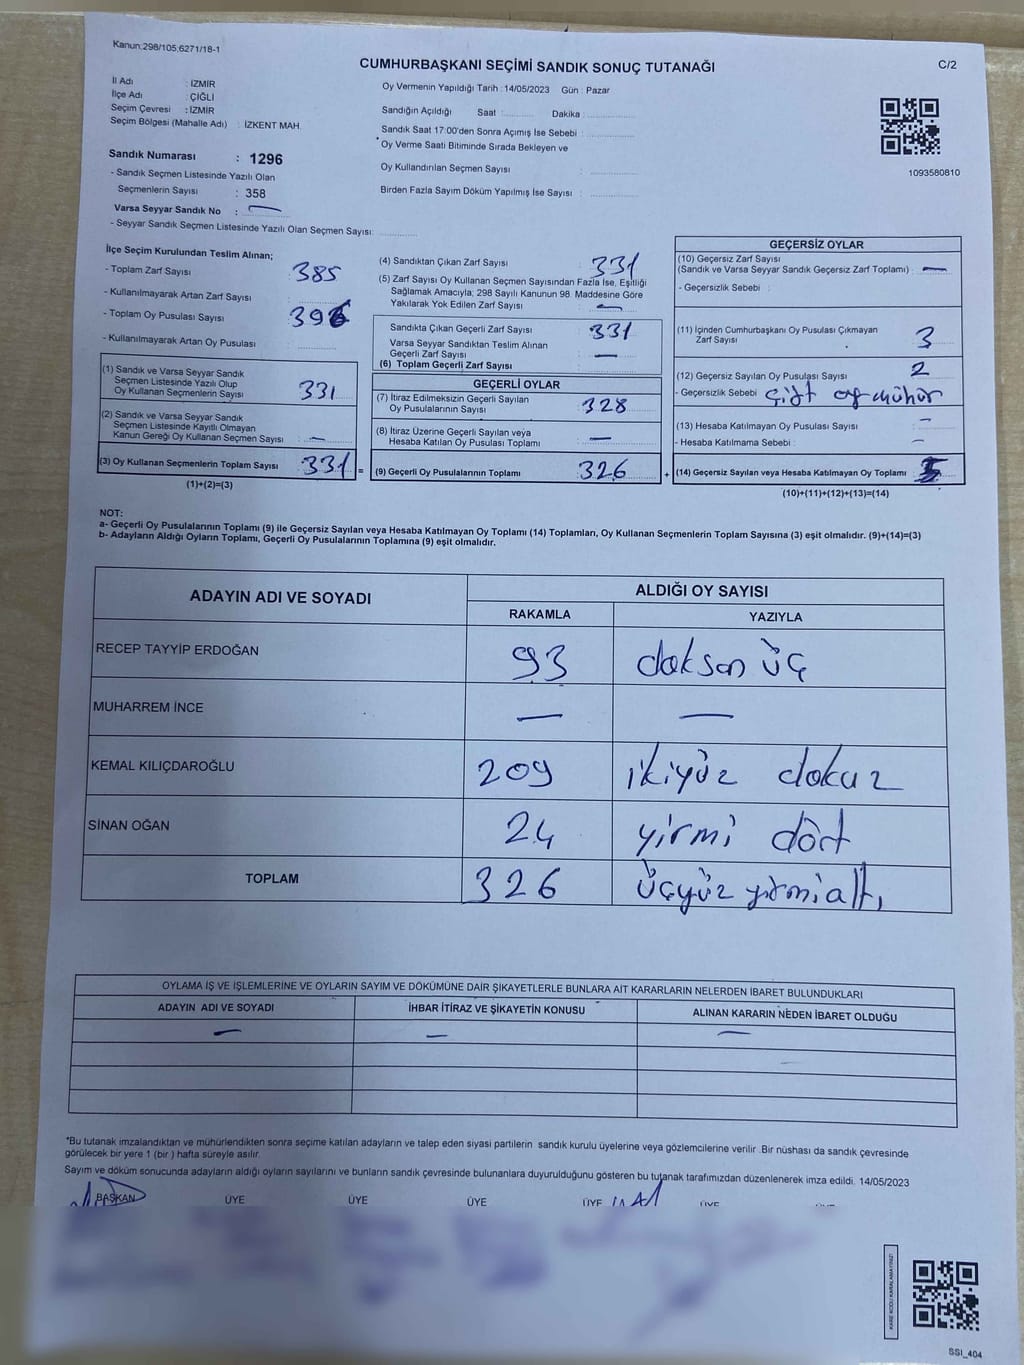 Kanun:298/105;6271/18-1
CUMHURBAŞKANI SEÇİMİ SANDIK SONUÇ TUTANAĞI
C/2
İl Adı : İZMİR
İlçe Adı : ÇİĞLİ
Seçim Çevresi : İZMİR
Seçim Bölgesi (Mahalle Adı) : İZKENT MAH.
Sandık Numarası : 1296
- Sandık Seçmen Listesinde Yazılı Olan
Seçmenlerin Sayısı : 358
Varsa Seyyar Sandık No : —
- Seyyar Sandık Seçmen Listesinde Yazılı Olan Seçmen Sayısı:
Oy Vermenin Yapıldığı Tarih : 14/05/2023 Gün : Pazar
Sandığın Açıldığı Saat : Dakika :
Sandık Saat 17:00'den Sonra Açımış İse Sebebi :
* Oy Verme Saati Bitiminde Sırada Bekleyen ve
Oy Kullandırılan Seçmen Sayısı :
Birden Fazla Sayım Döküm Yapılmış İse Sayısı :
1093580810
İlçe Seçim Kurulundan Teslim Alınan;
- Toplam Zarf Sayısı : 385
- Kullanılmayarak Artan Zarf Sayısı :
- Toplam Oy Pusulası Sayısı : 396
- Kullanılmayarak Artan Oy Pusulası :
(1) Sandık ve Varsa Seyyar Sandık
Seçmen Listesinde Yazılı Olup
Oy Kullanan Seçmenlerin Sayısı : 331
(2) Sandık ve Varsa Seyyar Sandık
Seçmen Listesinde Kayıtlı Olmayan
Kanun Gereği Oy Kullanan Seçmen Sayısı : —
(3) Oy Kullanan Seçmenlerin Toplam Sayısı : 331 =
(1)+(2)=(3)
(4) Sandıktan Çıkan Zarf Sayısı : 331
(5) Zarf Sayısı Oy Kullanan Seçmen Sayısından Fazla İse, Eşitliği
Sağlamak Amacıyla; 298 Sayılı Kanunun 98. Maddesine Göre
Yakılarak Yok Edilen Zarf Sayısı : —
Sandıkta Çıkan Geçerli Zarf Sayısı : 331
Varsa Seyyar Sandıktan Teslim Alınan
Geçerli Zarf Sayısı : —
(6) Toplam Geçerli Zarf Sayısı :
GEÇERLİ OYLAR
(7) İtiraz Edilmeksizin Geçerli Sayılan
Oy Pusulalarının Sayısı : 328
(8) İtiraz Üzerine Geçerli Sayılan veya
Hesaba Katılan Oy Pusulası Toplamı : —
(9) Geçerli Oy Pusulalarının Toplamı : 326 +
GEÇERSİZ OYLAR
(10) Geçersiz Zarf Sayısı
(Sandık ve Varsa Seyyar Sandık Geçersiz Zarf Toplamı) : —
- Geçersizlik Sebebi :
(11) İçinden Cumhurbaşkanı Oy Pusulası Çıkmayan
Zarf Sayısı : 3
(12) Geçersiz Sayılan Oy Pusulası Sayısı : 2
- Geçersizlik Sebebi : çift oy mühür
(13) Hesaba Katılmayan Oy Pusulası Sayısı : —
- Hesaba Katılmama Sebebi : —
(14) Geçersiz Sayılan veya Hesaba Katılmayan Oy Toplamı : 5
(10)+(11)+(12)+(13)=(14)
NOT:
a- Geçerli Oy Pusulalarının Toplamı (9) ile Geçersiz Sayılan veya Hesaba Katılmayan Oy Toplamı (14) Toplamları, Oy Kullanan Seçmenlerin Toplam Sayısına (3) eşit olmalıdır. (9)+(14)=(3)
b- Adayların Aldığı Oyların Toplamı, Geçerli Oy Pusulalarının Toplamına (9) eşit olmalıdır.
ADAYIN ADI VE SOYADI
ALDIĞI OY SAYISI
RAKAMLA YAZIYLA
RECEP TAYYİP ERDOĞAN 93 doksan üç
MUHARREM İNCE — —
KEMAL KILIÇDAROĞLU 209 ikiyüz dokuz
SİNAN OĞAN 24 yirmi dört
TOPLAM 326 üçyüz yirmialtı
OYLAMA İŞ VE İŞLEMLERİNE VE OYLARIN SAYIM VE DÖKÜMÜNE DAİR ŞİKAYETLERLE BUNLARA AİT KARARLARIN NELERDEN İBARET BULUNDUKLARI
ADAYIN ADI VE SOYADI İHBAR İTİRAZ VE ŞİKAYETİN KONUSU ALINAN KARARIN NEDEN İBARET OLDUĞU
— — —
*Bu tutanak imzalandıktan ve mühürlendikten sonra seçime katılan adayların ve talep eden siyasi partilerin sandık kurulu üyelerine veya gözlemcilerine verilir .Bir nüshası da sandık çevresinde
görülecek bir yere 1 (bir ) hafta süreyle asılır.
Sayım ve döküm sonucunda adayların aldığı oyların sayılarını ve bunların sandık çevresinde bulunanlara duyurulduğunu gösteren bu tutanak tarafımızdan düzenlenerek imza edildi. 14/05/2023
BAŞKAN ÜYE ÜYE ÜYE ÜYE ÜYE ÜYE
KARE KODU KARALAMAYINIZ!
SSI_404